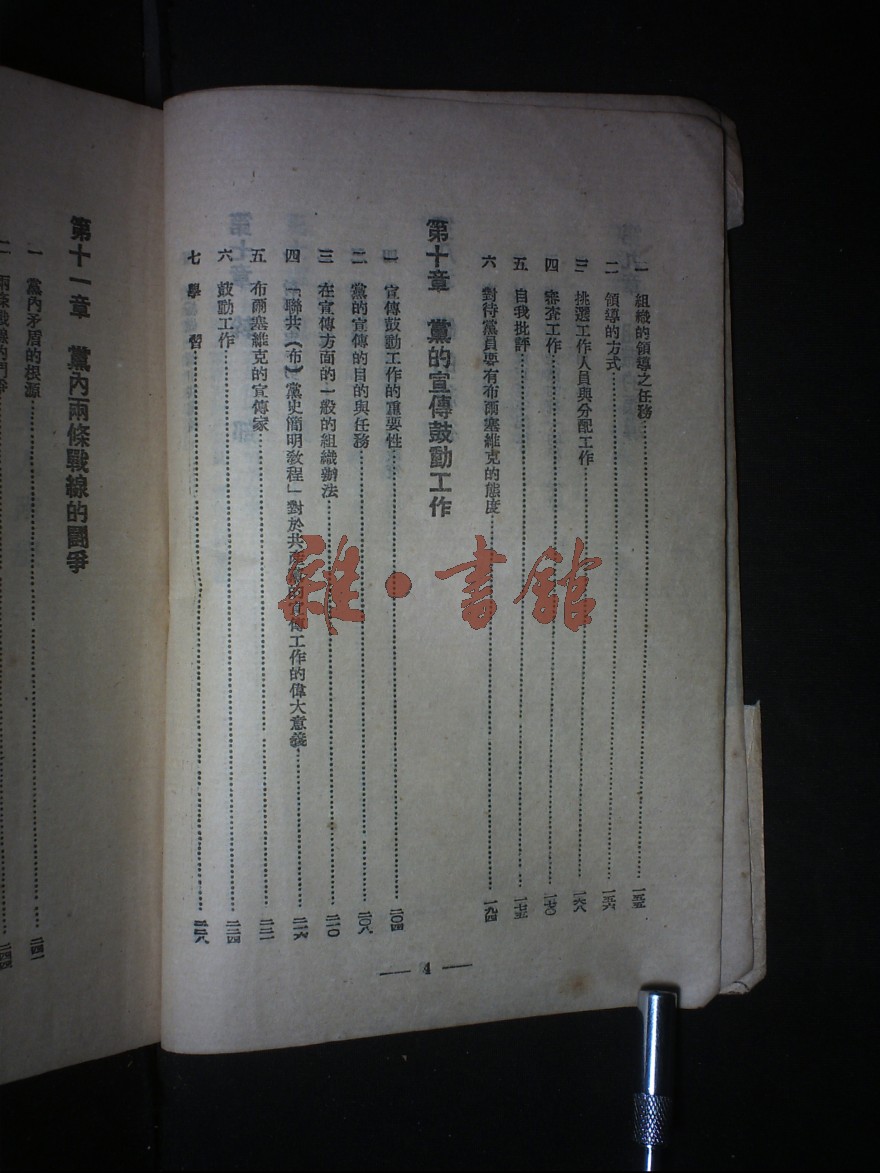 一 組織的領導之任務……一五五
二 領導的方式……一五六
三 挑選工作人員與分配工作……一六八
四 審查工作……一七〇
五 自我批評……一七五
六 對待黨員要有布爾塞維克的態度……一九四
第十章 黨的宣傳鼓動工作
一 宣傳鼓動工作的重要性……二〇四
二 黨的宣傳的目的與任務……二〇八
三 在宣傳方面的一般的組織辦法……二一〇
四 「聯共(布)黨史簡明敎程」對於共產黨的宣傳工作的偉大意義……二一六
五 布爾塞維克的宣傳家……二二一
六 鼓動工作……二二四
七 學習……二二八
— 4 —
第十一章 黨內兩條戰線的鬬爭
一 黨內矛盾的根源……二四一
二 兩條戰線的鬥爭……二四四
雜·書館